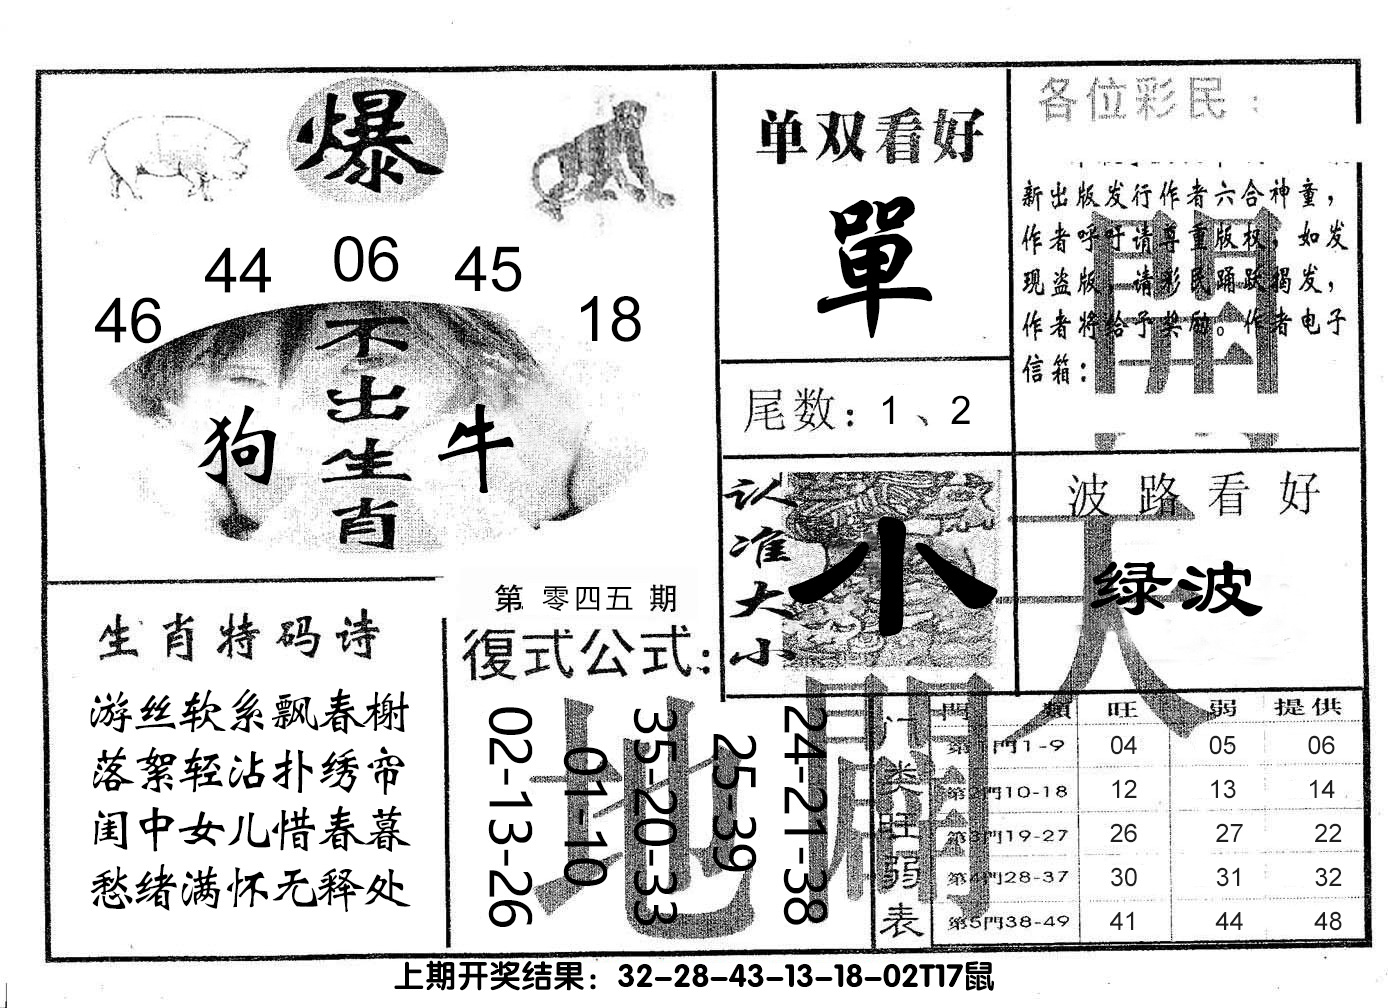 爆
46
44
06
45
18
不出生肖
狗
牛
单双看好
單
尾数：1、2
各位彩民：
新出版发行作者六合神童，
作者呼吁请尊重版权，如发
现盗版，请彩民踊跃揭发，
作者将给予奖励。作者电子
信箱：
認准大小
小
波路看好
绿波
生肖特码诗
游丝软系飘春榭
落絮轻沾扑绣帘
闺中女儿惜春暮
愁绪满怀无释处
第 零四五 期
復式公式：
02-13-26
01-10
35-20-33
25-39
24-21-38
天
地
開
門类旺弱表
門 類 旺 弱 提供
第1門1-9 04 05 06
第2門10-18 12 13 14
第3門19-27 26 27 22
第4門28-37 30 31 32
第5門38-49 41 44 48
上期开奖结果：32-28-43-13-18-02T17鼠